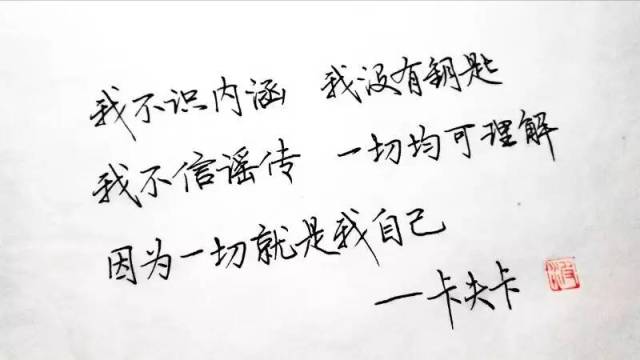 我不识内涵 我没有钥匙
我不信谣传 一切均可理解
因为一切就是我自己
一卡夫卡